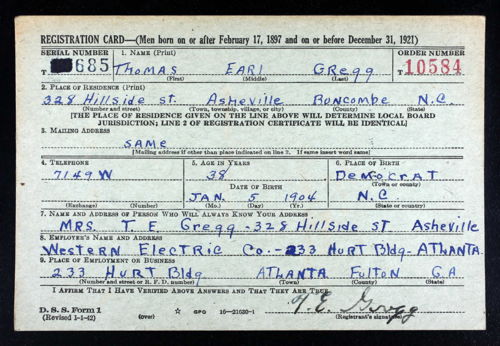 REGISTRATION CARD—(Men born on or after February 17, 1897 and on or before December 31, 1921)
SERIAL NUMBER 1. NAME (Print) ORDER NUMBER
T 685 THOMAS EARL GREGG T 10584
(First) (Middle) (Last)
2. PLACE OF RESIDENCE (Print)
328 Hillside St. Asheville Boncombe N.C.
(Number and street) (Town, township, village, or city) (County) (State)
[THE PLACE OF RESIDENCE GIVEN ON THE LINE ABOVE WILL DETERMINE LOCAL BOARD
JURISDICTION; LINE 2 OF REGISTRATION CERTIFICATE WILL BE IDENTICAL]
3. MAILING ADDRESS
SAME
[Mailing address if other than place indicated on line 2. If same insert word same]
4. TELEPHONE 5. AGE IN YEARS 6. PLACE OF BIRTH
7149 W 38 DEMOCRAT
DATE OF BIRTH (Town or county)
JAN. 5 1904 N.C.
(Exchange) (Number) (Mo.) (Day) (Yr.) (State or country)
7. NAME AND ADDRESS OF PERSON WHO WILL ALWAYS KNOW YOUR ADDRESS
MRS. T. E. Gregg - 328 Hillside ST Asheville
8. EMPLOYER'S NAME AND ADDRESS
Western Electric Co - 233 HURT Bldg - ATLANTA
9. PLACE OF EMPLOYMENT OR BUSINESS
233 HURT Bldg ATLANTA FULTON G.A
(Number and street or R. F. D. number) (Town) (County) (State)
I AFFIRM THAT I HAVE VERIFIED ABOVE ANSWERS AND THAT THEY ARE TRUE.
T. E. Gregg
D. S. S. Form 1
(Revised 1-1-42) (over) GPO 16—21630-1 (Registrant's signature)